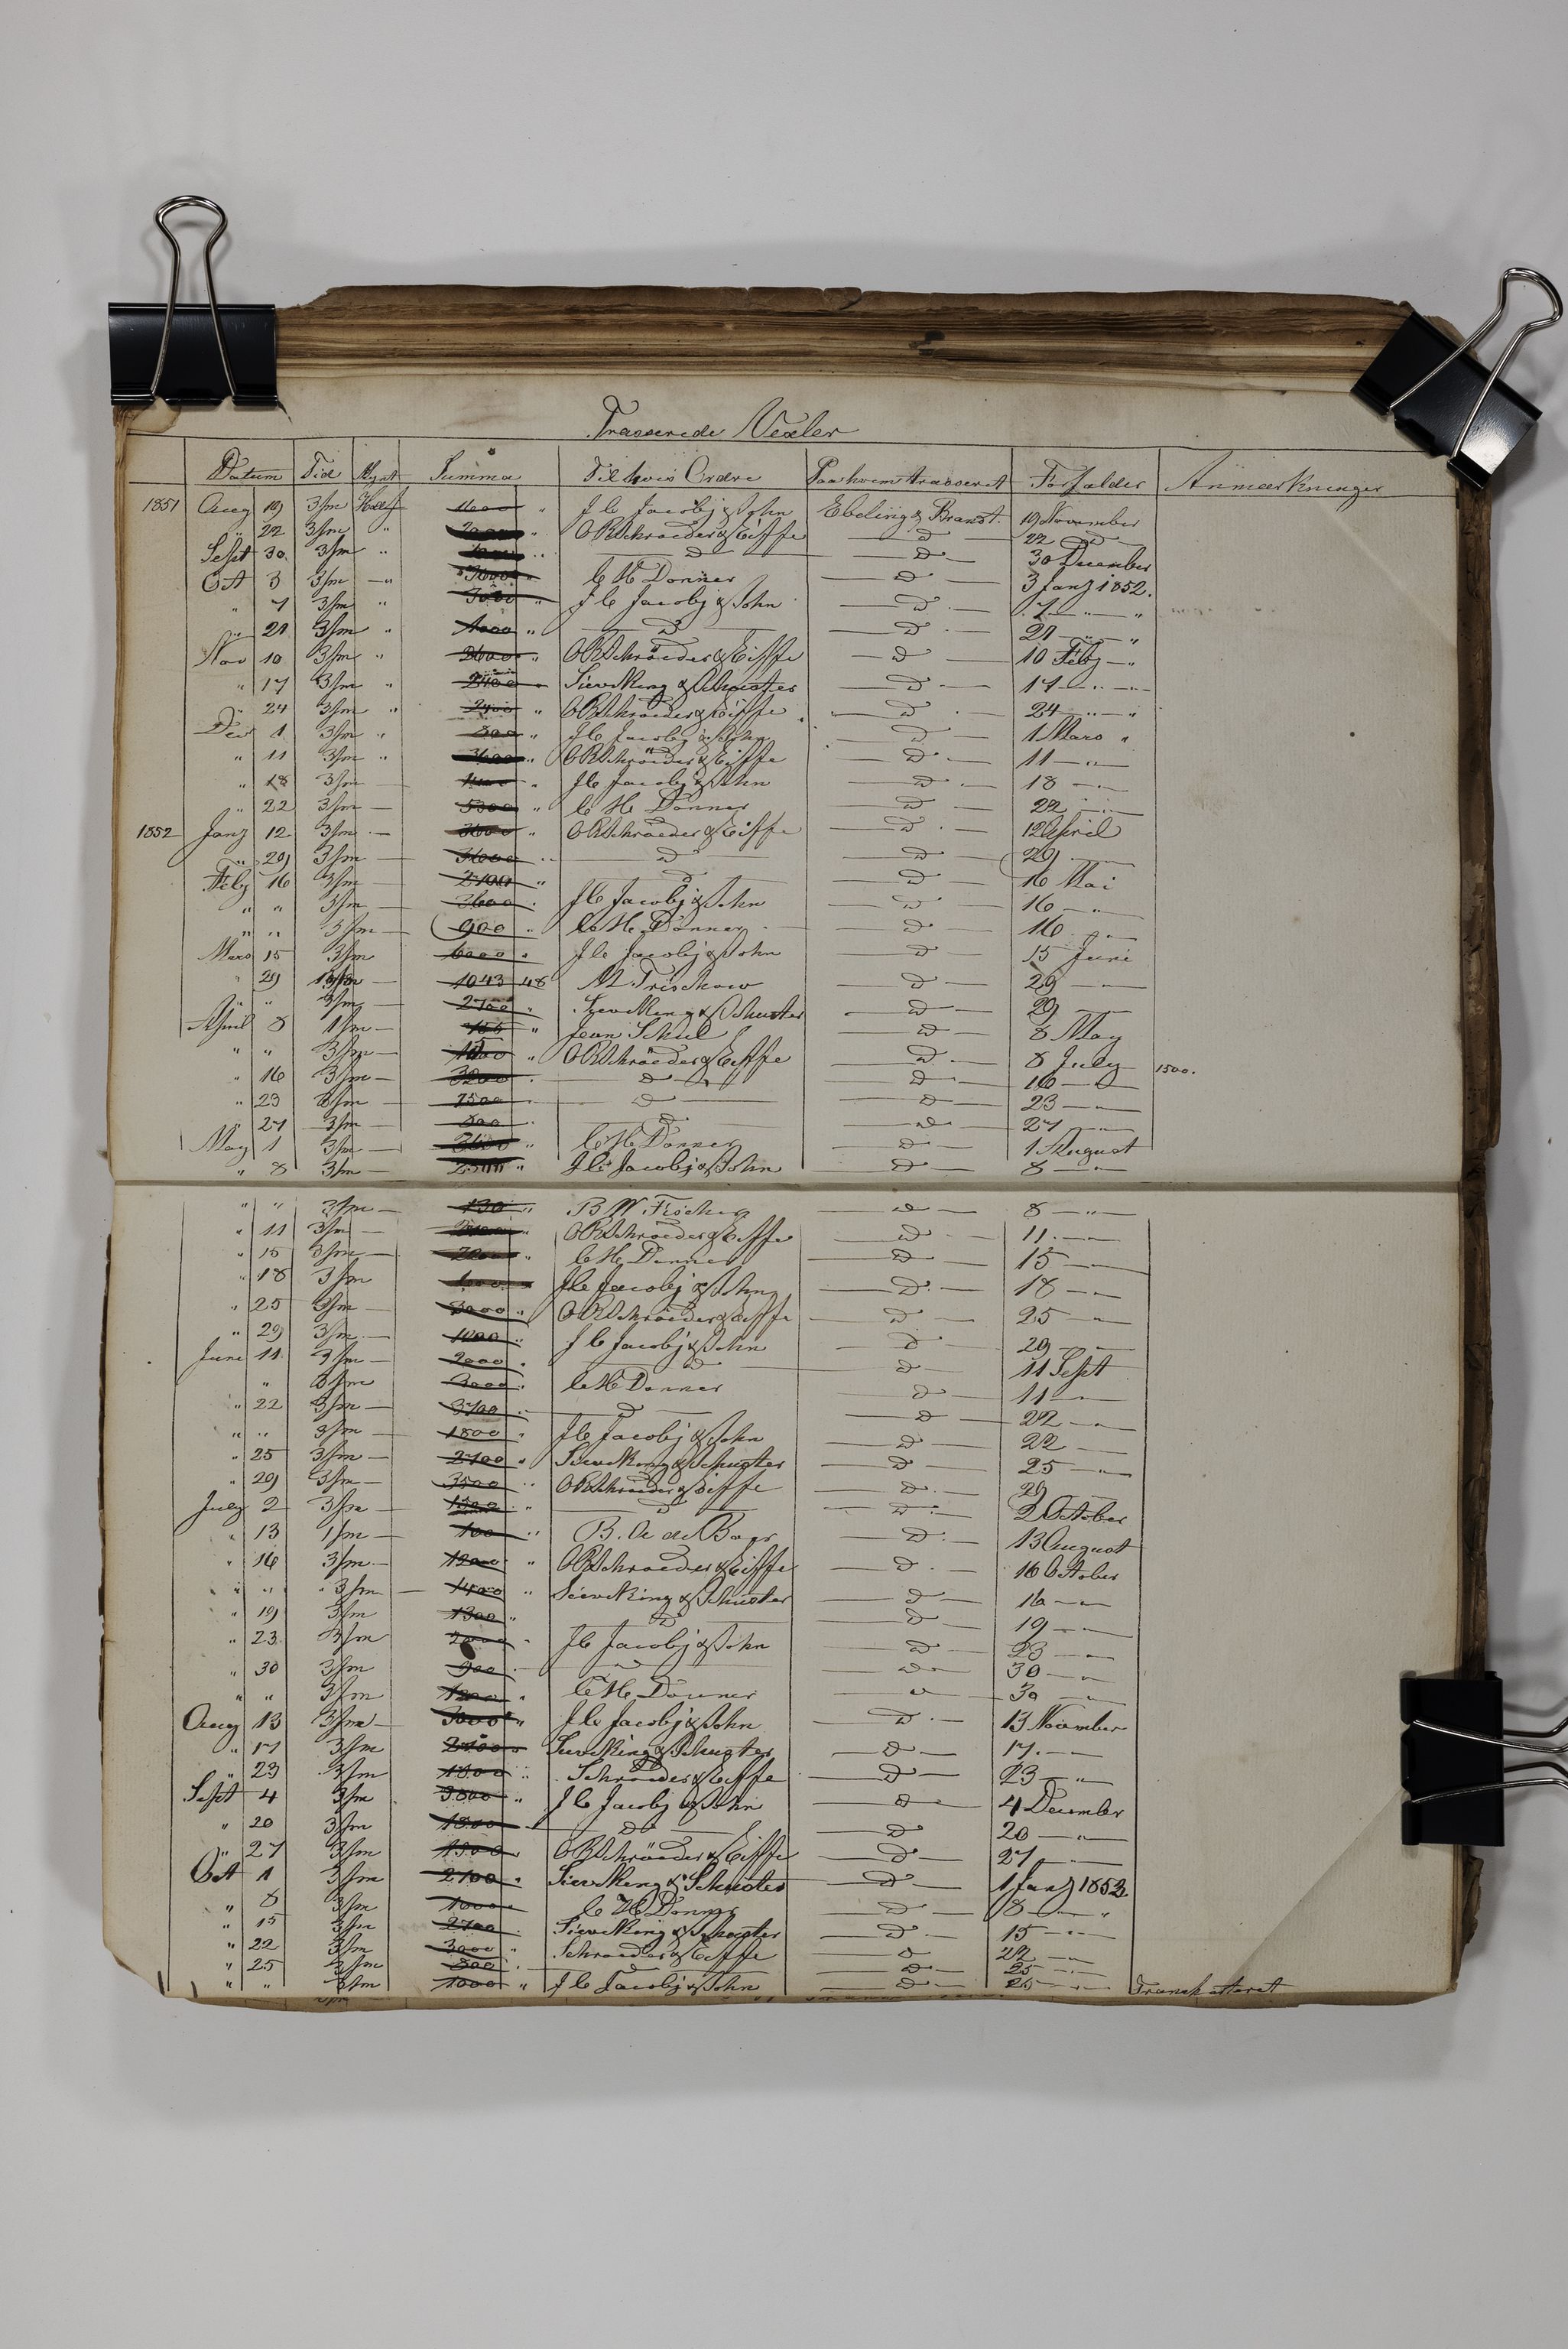 Trasserede Vexler
Datum Tid Mynt Summa Til hvis Ordre Paa hvem trasseret Forfalder Anmærkninger
1851 Aug 19 3/m 1600 " J C Jacobj & Sohn Ebeling & Brandt. 19 November
" 22 3/m " " O R Schroeder & Eiffe — D — 22 — D —
Sept 30 3/m " — D — — D — 30 December
Oct 3 3/m — " C H Donner — D — 3 Janj 1852.
" 7 3/m " 3000 " J C Jacobj & Sohn — D — 7 — " — "
" 21 3/m " 1000 " — D — — D — 21 — " — "
Nov 10 3/m " 3600 " O R Schröeder & Eiffe — D — 10 Feby — "
" 17 3/m " 2400 Sieveking & Schuster — D — 17 — " —
" 24 3/m " 2400 " O R Schröeder & Eiffe — D — 24 — " — "
Dec 1 3/m " 800 " J C Jacobj & Sohn — D — 1 Mars "
" 11 3/m " 3600 " O R Schröeder & Eiffe — D — 11 — "
" 18 3/m — " J C Jacobj & Sohn — D — 18 — "
" 22 3/m — 5300 " C H Donner — D — 22 — "
1852 Janj 12 3/m — 3600 " O R Schröeder & Eiffe — D — 12 April
" 29 3/m — 3600 — D — — D — 29 —
Feby 16 3/m — 2100 " — D — — D — 16 Mai
" " 3/m — 3600 J C Jacobj & Sohn — D — 16 — "
" " 3/m — 900 " C H Donner — D — 16 — "
Mars 15 3/m 6000 " J C Jacobj & Sohn — D — 15 Juni
" 29 — 1043 48 M Trischow — D — 29 — "
" " 3/m — 2700 " Sieveking & Schuster — D — 29 —
April 8 1/m — " Jean Schul — D — 8 May
" " 3/m — " O R Schröeder & Eiffe — D — 8 July 1500.
" 16 3/m — 3200 — D — — D — 16 — "
" 23 3/m — — D — — D — 23 — "
" 27 3/m — 800 — D — — D — 27 — "
May 1 3/m — " C H Donner — D — 1 August
" 8 3/m — " J C Jacobj & Sohn — D — 8 — "
" " 3/m — 130 " B W — D — 8 — "
" 11 3/m — " O R Schröeder & Eiffe — D — 11 — "
" 15 3/m — C H Donner — D — 15 —
" 18 3/m J C Jacobj & Sohn — D — 18 — "
" 25 3/m — 3000 " O R Schröeder & Eiffe — D — 25 — "
" 29 3/m — 1000 " J C Jacobj & Sohn — D — 29 — "
June 11 3/m — 2000 " — D — — D — 11 Sept
" 3/m 3000 " C H Donner — D — 11 — "
" 22 3/m — 3700 — D — — D — 22 — "
" " 3/m — 1800 " J C Jacobj & Sohn — D — 22 —
" 25 3/m — 2700 " Sieveking & Schuster — D — 25 — "
" 29 3/m — 3500 O R Schröeder & Eiffe — D — 29
July 2 3/m — " — D — — D — 2 October
" 13 1/m — 100 " B. A de Boer — D — 13 August
" 16 3/m — " O R Schroeder & Eiffe — D — 16 October
" " 3/m — 1400 " Sieveking & Schuster — D — 16 — "
" 19 3/m 1300 " — D — — D — 19 — "
" 23 3/m 2000 " J C Jacobj & Sohn — D — 23 — "
" 30 3/m 900 — D — — D — 30 — "
" " 3/m " C H Donner — " — 30 — "
Aug 13 3/m — 3000 " J C Jacobj & Sohn — D — 13 November
" 17 3/m Sieveking & Schuster — D — 17 — "
" 23 3/m 1800 " Schroeder & Eiffe — D — 23 — "
Sept 4 3/m 3800 " J C Jacobj & Sohn — D — 4 December
" 20 3/m — D — — D — 20 — "
" 27 3/m 1500 O R Schröeder & Eiffe — D — 27 —
Oct 1 3/m 2100 " Sieveking & Schuster — D — 1 Janj 1853
" 8 3/m 1000 C H Donner 8 — "
" 15 3/m 2700 Sieveking & Schuster — D — 15 — "
" 22 3/m 3000 " Schroeder & Eiffe — D — 22 — "
" 25 3/m 800 — D — — D — 25 —
" " 3/m 1000 " J C Jacobj & Sohn — D — 25 — "